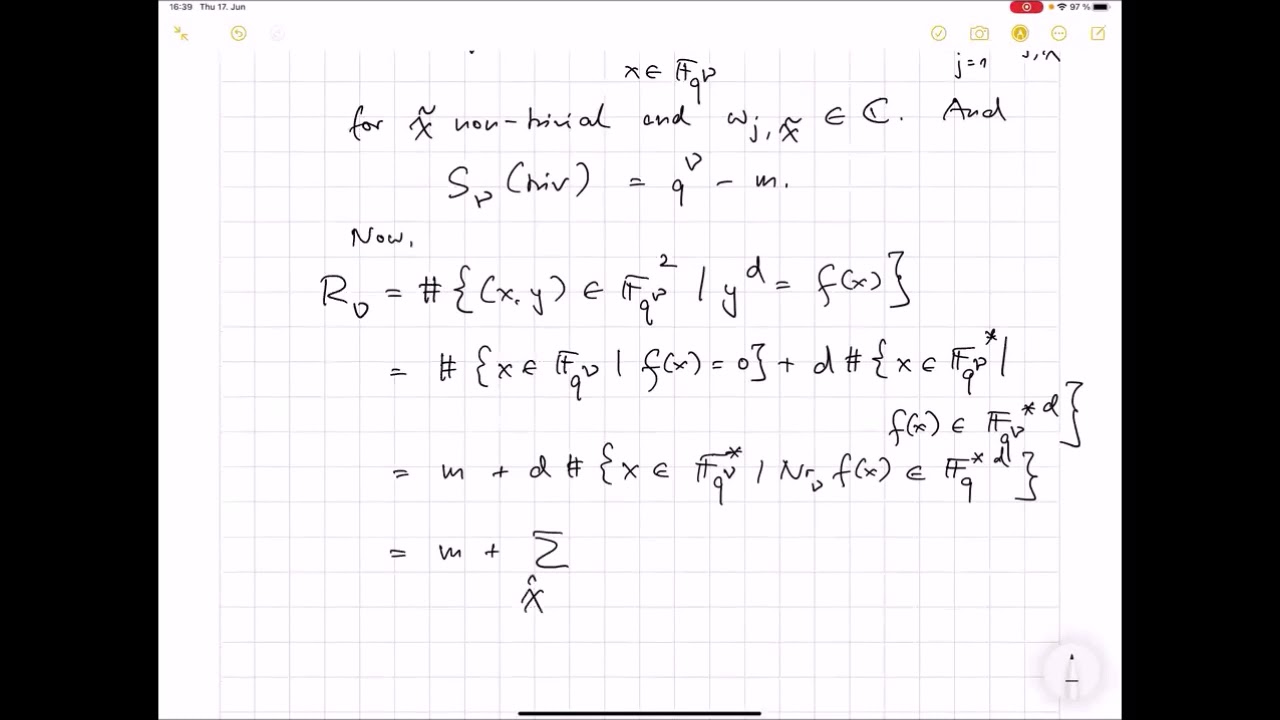 16:39 Thu 17. Jun 97 %
x ∈ 𝔽_{q^ν} j=1
for χ̃ non-trivial and ω_{j,χ̃} ∈ ℂ. And
S_ν (triv) = q^ν - m.
Now,
R_ν = #{(x,y) ∈ 𝔽_{q^ν}^2 | y^d = f(x)}
= #{x ∈ 𝔽_{q^ν} | f(x) = 0} + d #{x ∈ 𝔽_{q^ν}^* |
f(x) ∈ 𝔽_{q^ν}^{*d}}
= m + d #{x ∈ 𝔽_{q^ν}^* | Nr_ν f(x) ∈ 𝔽_q^{*d}}
= m + Σ
χ̂